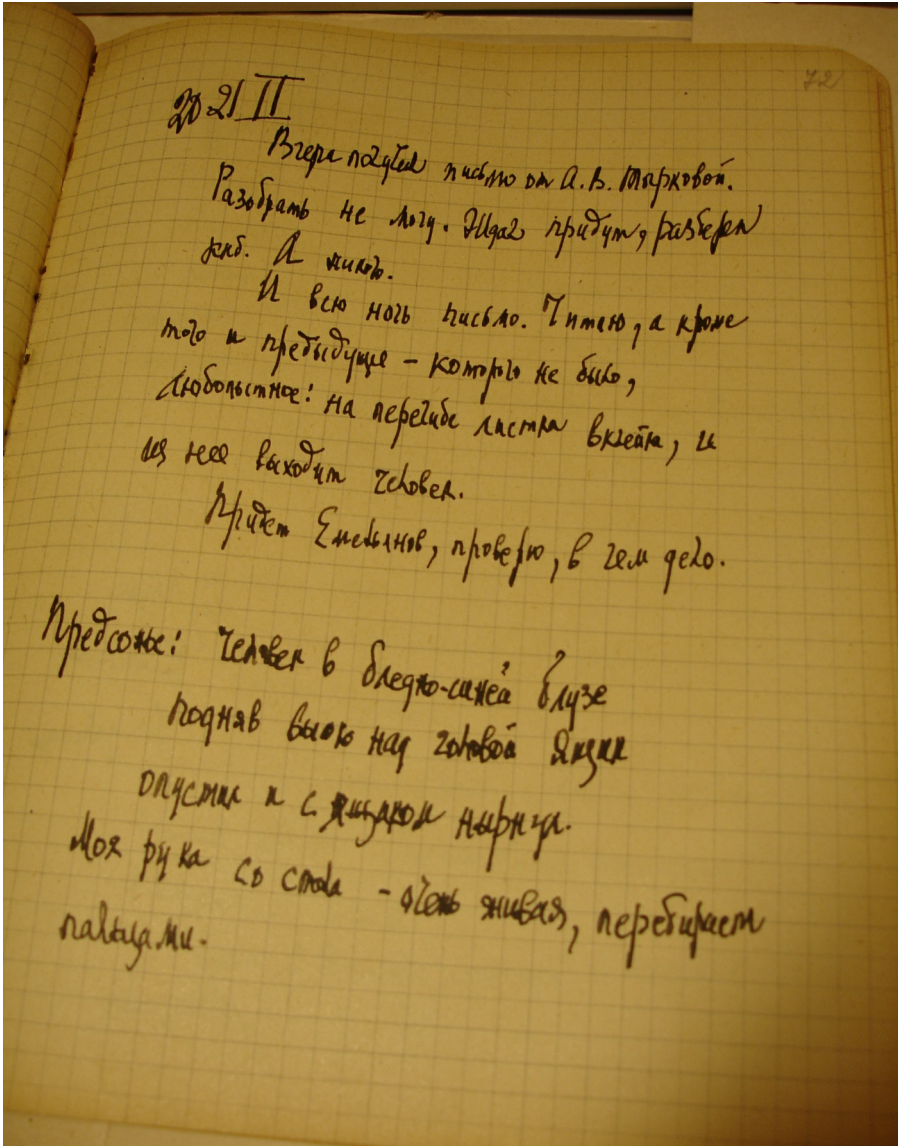 72
20-21 II
Вчера получил письмо от А.В. Тырковой.
Разобрать не могу. Жида2 придут, разберем
кнб. А
И всю ночь письмо. Читаю, а кроме
того и предыдущее – которого не было,
любопытное: на перегибе листка вклейка, и
из нее выходит человек.
Придет Емельянов, проверю, в чем дело.
Предсонье: Человек в бледно-синей блузе
подняв высоко над головой ящик
опустил и с ящиком нырнул.
Моя рука со стола – очень живая, перебирает
пальцами.